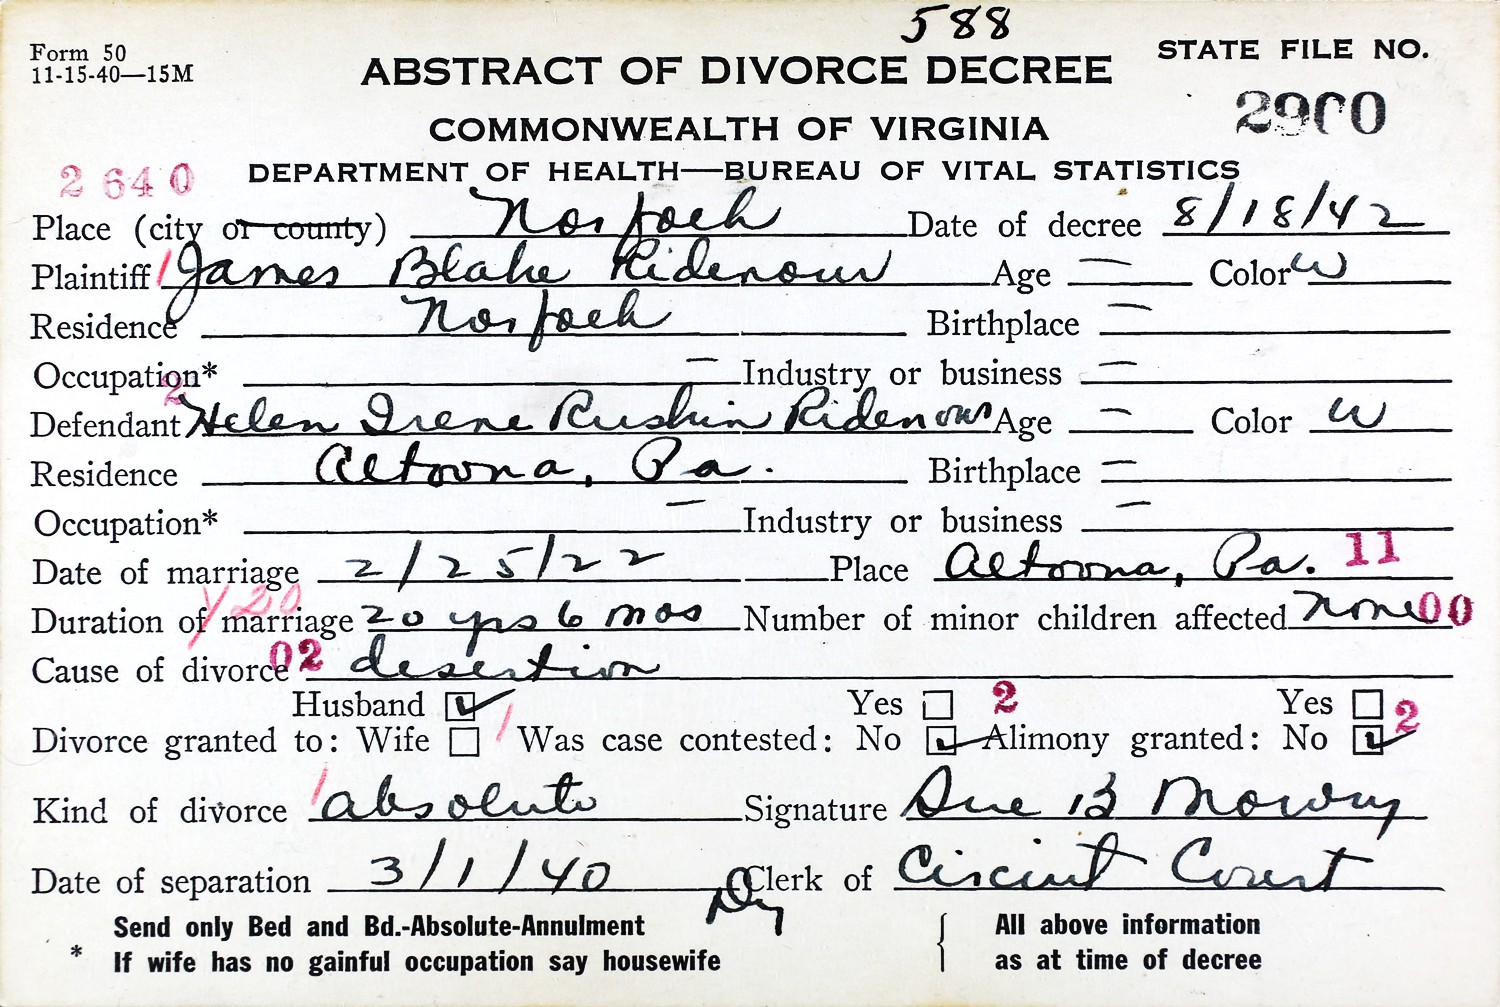 588
Form 50
11-15-40—15M
ABSTRACT OF DIVORCE DECREE
STATE FILE NO.
2900
COMMONWEALTH OF VIRGINIA
2640
DEPARTMENT OF HEALTH—BUREAU OF VITAL STATISTICS
Place (city or county) Norfolk Date of decree 8/18/42
Plaintiff 1 James Blake Ridenour Age — Color W
Residence Norfolk Birthplace —
Occupation* — Industry or business —
2
Defendant Helen Irene Rushin Ridenour Age — Color W
Residence Altoona, Pa. Birthplace —
Occupation* — Industry or business —
Date of marriage 2/25/22 Place Altoona, Pa. 11
Y 20
Duration of marriage 20 yrs 6 mos Number of minor children affected none 00
Cause of divorce 02 desertion
Husband Yes 2 Yes 2
Divorce granted to: Wife / Was case contested: No Alimony granted: No
Kind of divorce 1 absolute Signature Sue B Mowry
Date of separation 3/1/40 Dy Clerk of Circuit Court
Send only Bed and Bd.-Absolute-Annulment
* If wife has no gainful occupation say housewife
All above information
as at time of decree